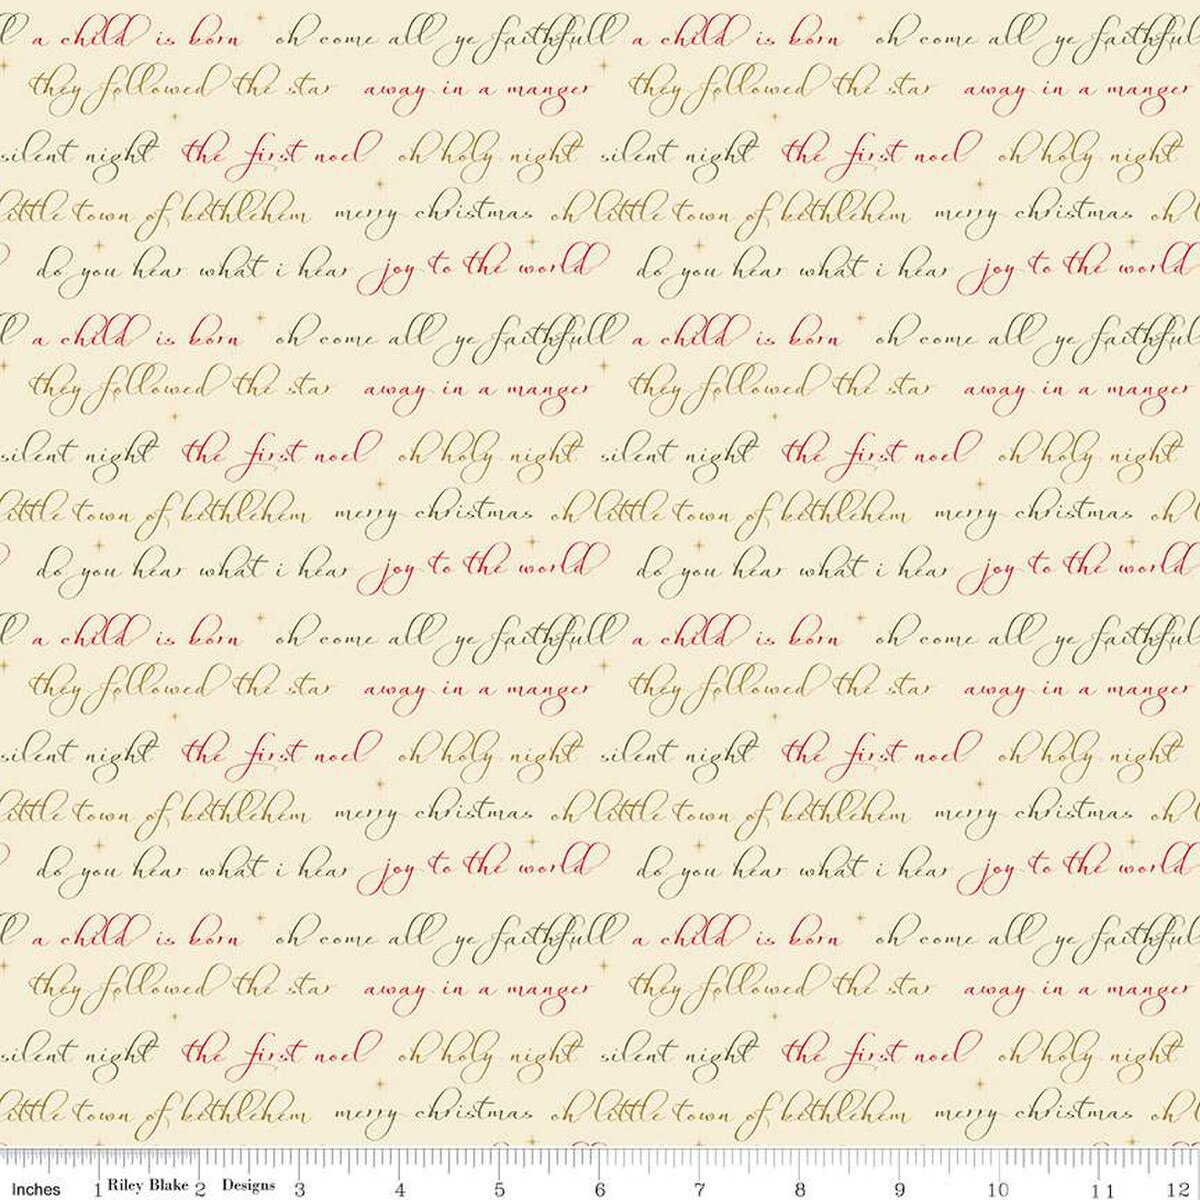 l a child is born oh come all ye faithfull a child is born oh come all ye faithful
they followed the star away in a manger they followed the star away in a manger
silent night the first noel oh holy night silent night the first noel oh holy night
little town of bethlehem merry christmas oh little town of bethlehem merry christmas oh l
do you hear what i hear joy to the world do you hear what i hear joy to the world
l a child is born oh come all ye faithfull a child is born oh come all ye faithful
they followed the star away in a manger they followed the star away in a manger
silent night the first noel oh holy night silent night the first noel oh holy night
little town of bethlehem merry christmas oh little town of bethlehem merry christmas oh l
do you hear what i hear joy to the world do you hear what i hear joy to the world
l a child is born oh come all ye faithfull a child is born oh come all ye faithful
they followed the star away in a manger they followed the star away in a manger
silent night the first noel oh holy night silent night the first noel oh holy night
little town of bethlehem merry christmas oh little town of bethlehem merry christmas oh l
do you hear what i hear joy to the world do you hear what i hear joy to the world
l a child is born oh come all ye faithfull a child is born oh come all ye faithful
they followed the star away in a manger they followed the star away in a manger
silent night the first noel oh holy night silent night the first noel oh holy night
little town of bethlehem merry christmas oh little town of bethlehem merry christmas oh l
Inches 1 Riley Blake 2 Designs 3 4 5 6 7 8 9 10 11 12